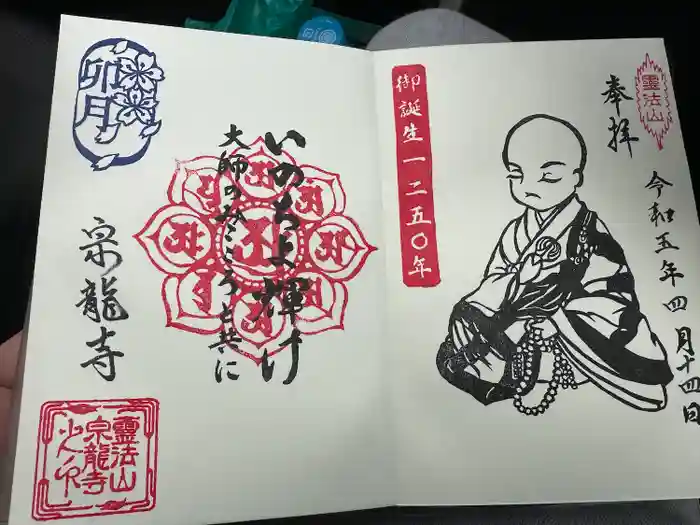 霊法山
奉拝
令和五年四月十四日
御誕生一二五〇年
いのちよ輝け
大師のみこころと共に
卯月
宗龍寺
霊法山
宗龍寺